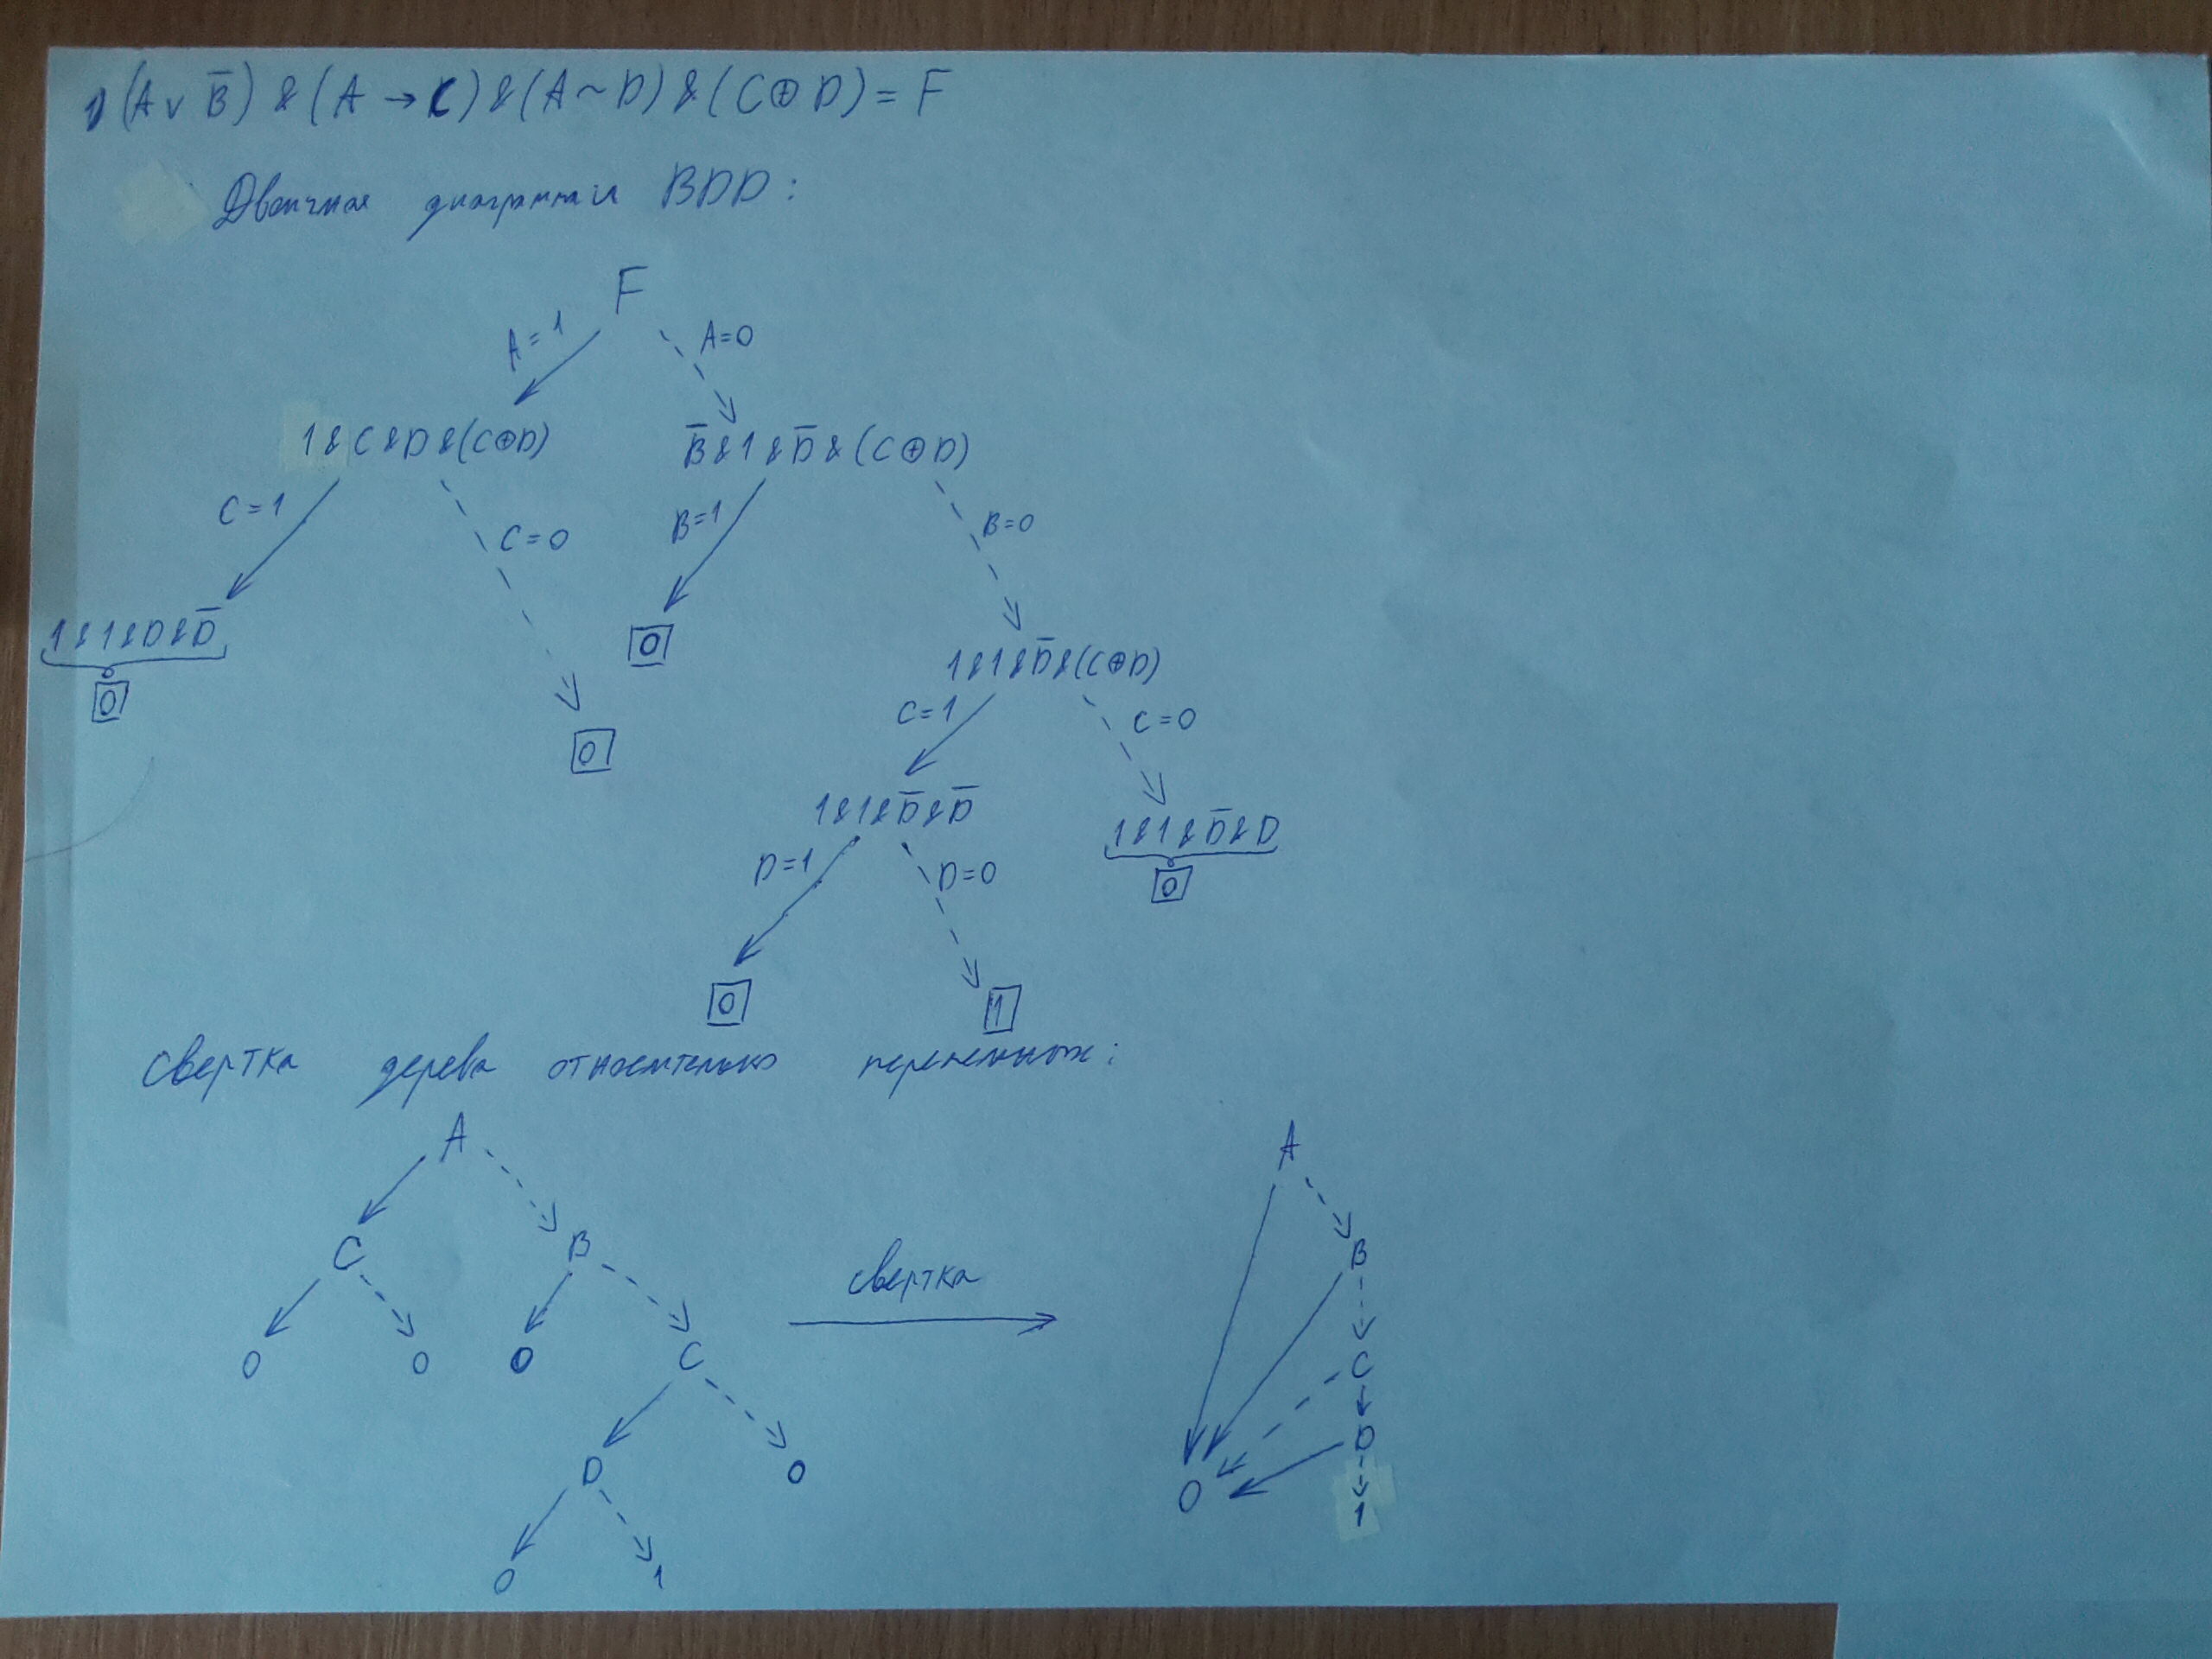 1) (A ∨ B̅) & (A → C) & (A ~ D) & (C ⊕ D) = F
Двоичная диаграмма BDD:
F
A=1 A=0
1&C&D&(C⊕D) B̅&1&D̅&(C⊕D)
C=1 C=0 B=1 B=0
1&1&D&D̅ 0 1&1&D̅&(C⊕D)
0 0 C=1 C=0
1&1&D̅&D̅ 1&1&D̅&D
D=1 D=0 0
0 1
свертка дерева относительно переменных:
A A
C B свертка B
0 0 0 C C
D 0 D
0 1 0 1